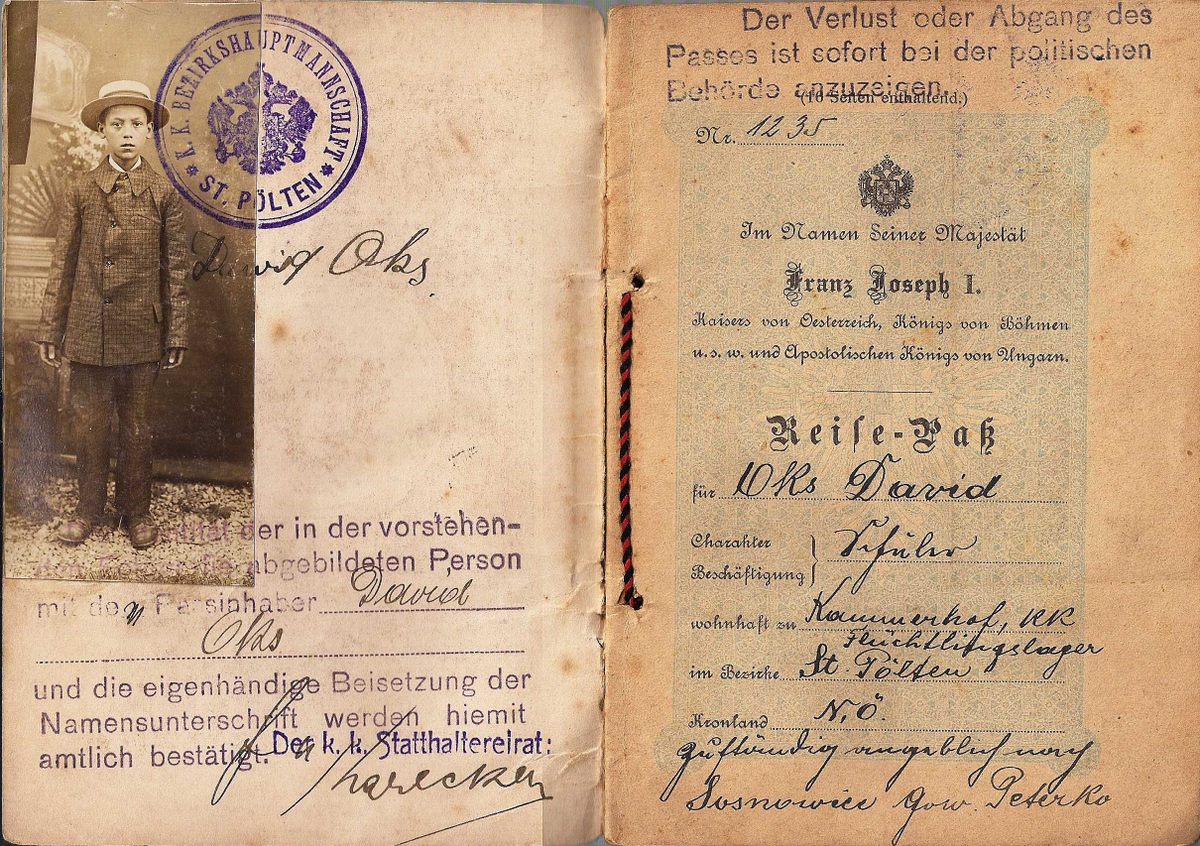 K. K. BEZIRKSHAUPTMANNSCHAFT
* ST. PÖLTEN *
Dawid Oks.
der in der vorstehen-
abgebildeten Person
mit dem Passinhaber David
Oks
und die eigenhändige Beisetzung der
Namensunterschrift werden hiemit
amtlich bestätigt.
Der k. k. Statthaltereirat:
Der Verlust oder Abgang des
Passes ist sofort bei der politischen
Behörde anzuzeigen.
(16 Seiten enthaltend.)
Nr. 1235
Im Namen Seiner Majestät
Franz Joseph I.
Kaisers von Oesterreich, Königs von Böhmen
u. s. w. und Apostolischen Königs von Ungarn.
Reise-Paß
für Oks David
Charakter
Beschäftigung } Schüler
wohnhaft zu Kammerhof, kk
Flüchtlingslager
im Bezirke St. Pölten
Kronland N.Ö.
zuständig angeblich nach
Sosnowice gow. Peterko